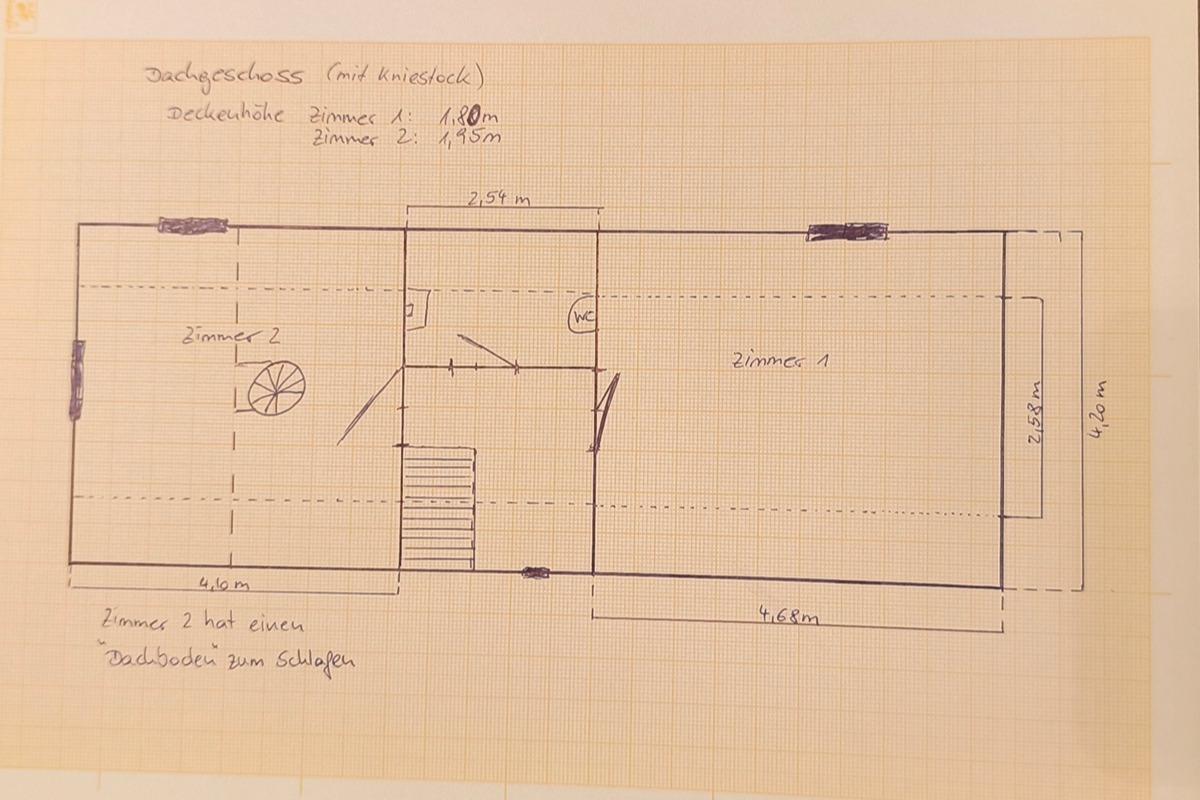 Dachgeschoss (mit Kniestock)
Deckenhöhe Zimmer 1: 1,80m
Zimmer 2: 1,95m
2,54 m
Zimmer 2
WC
Zimmer 1
2,58m
4,20m
4,10m
4,68m
Zimmer 2 hat einen
"Dachboden" zum Schlafen